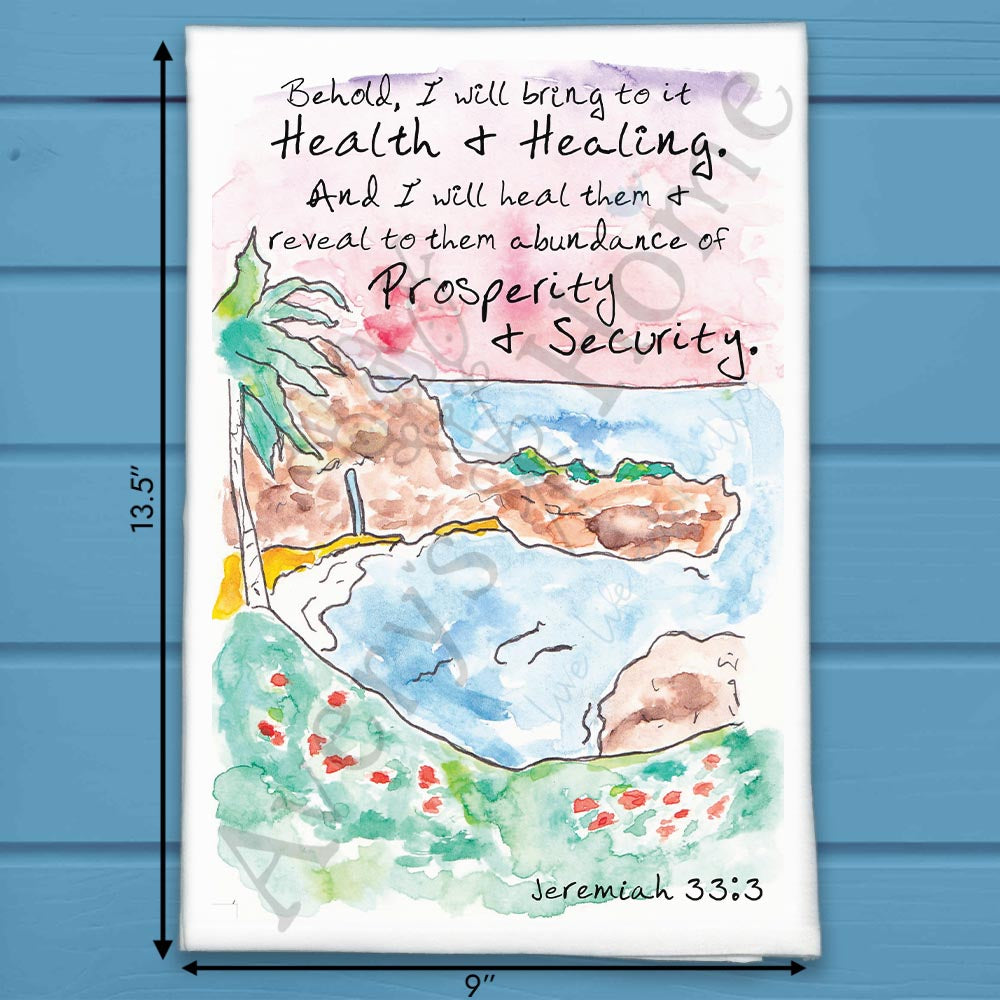 Behold, I will bring to it
Health & Healing.
And I will heal them &
reveal to them abundance of
Prosperity
& Security.
Jeremiah 33:3
13.5"
9"
Avery's Home